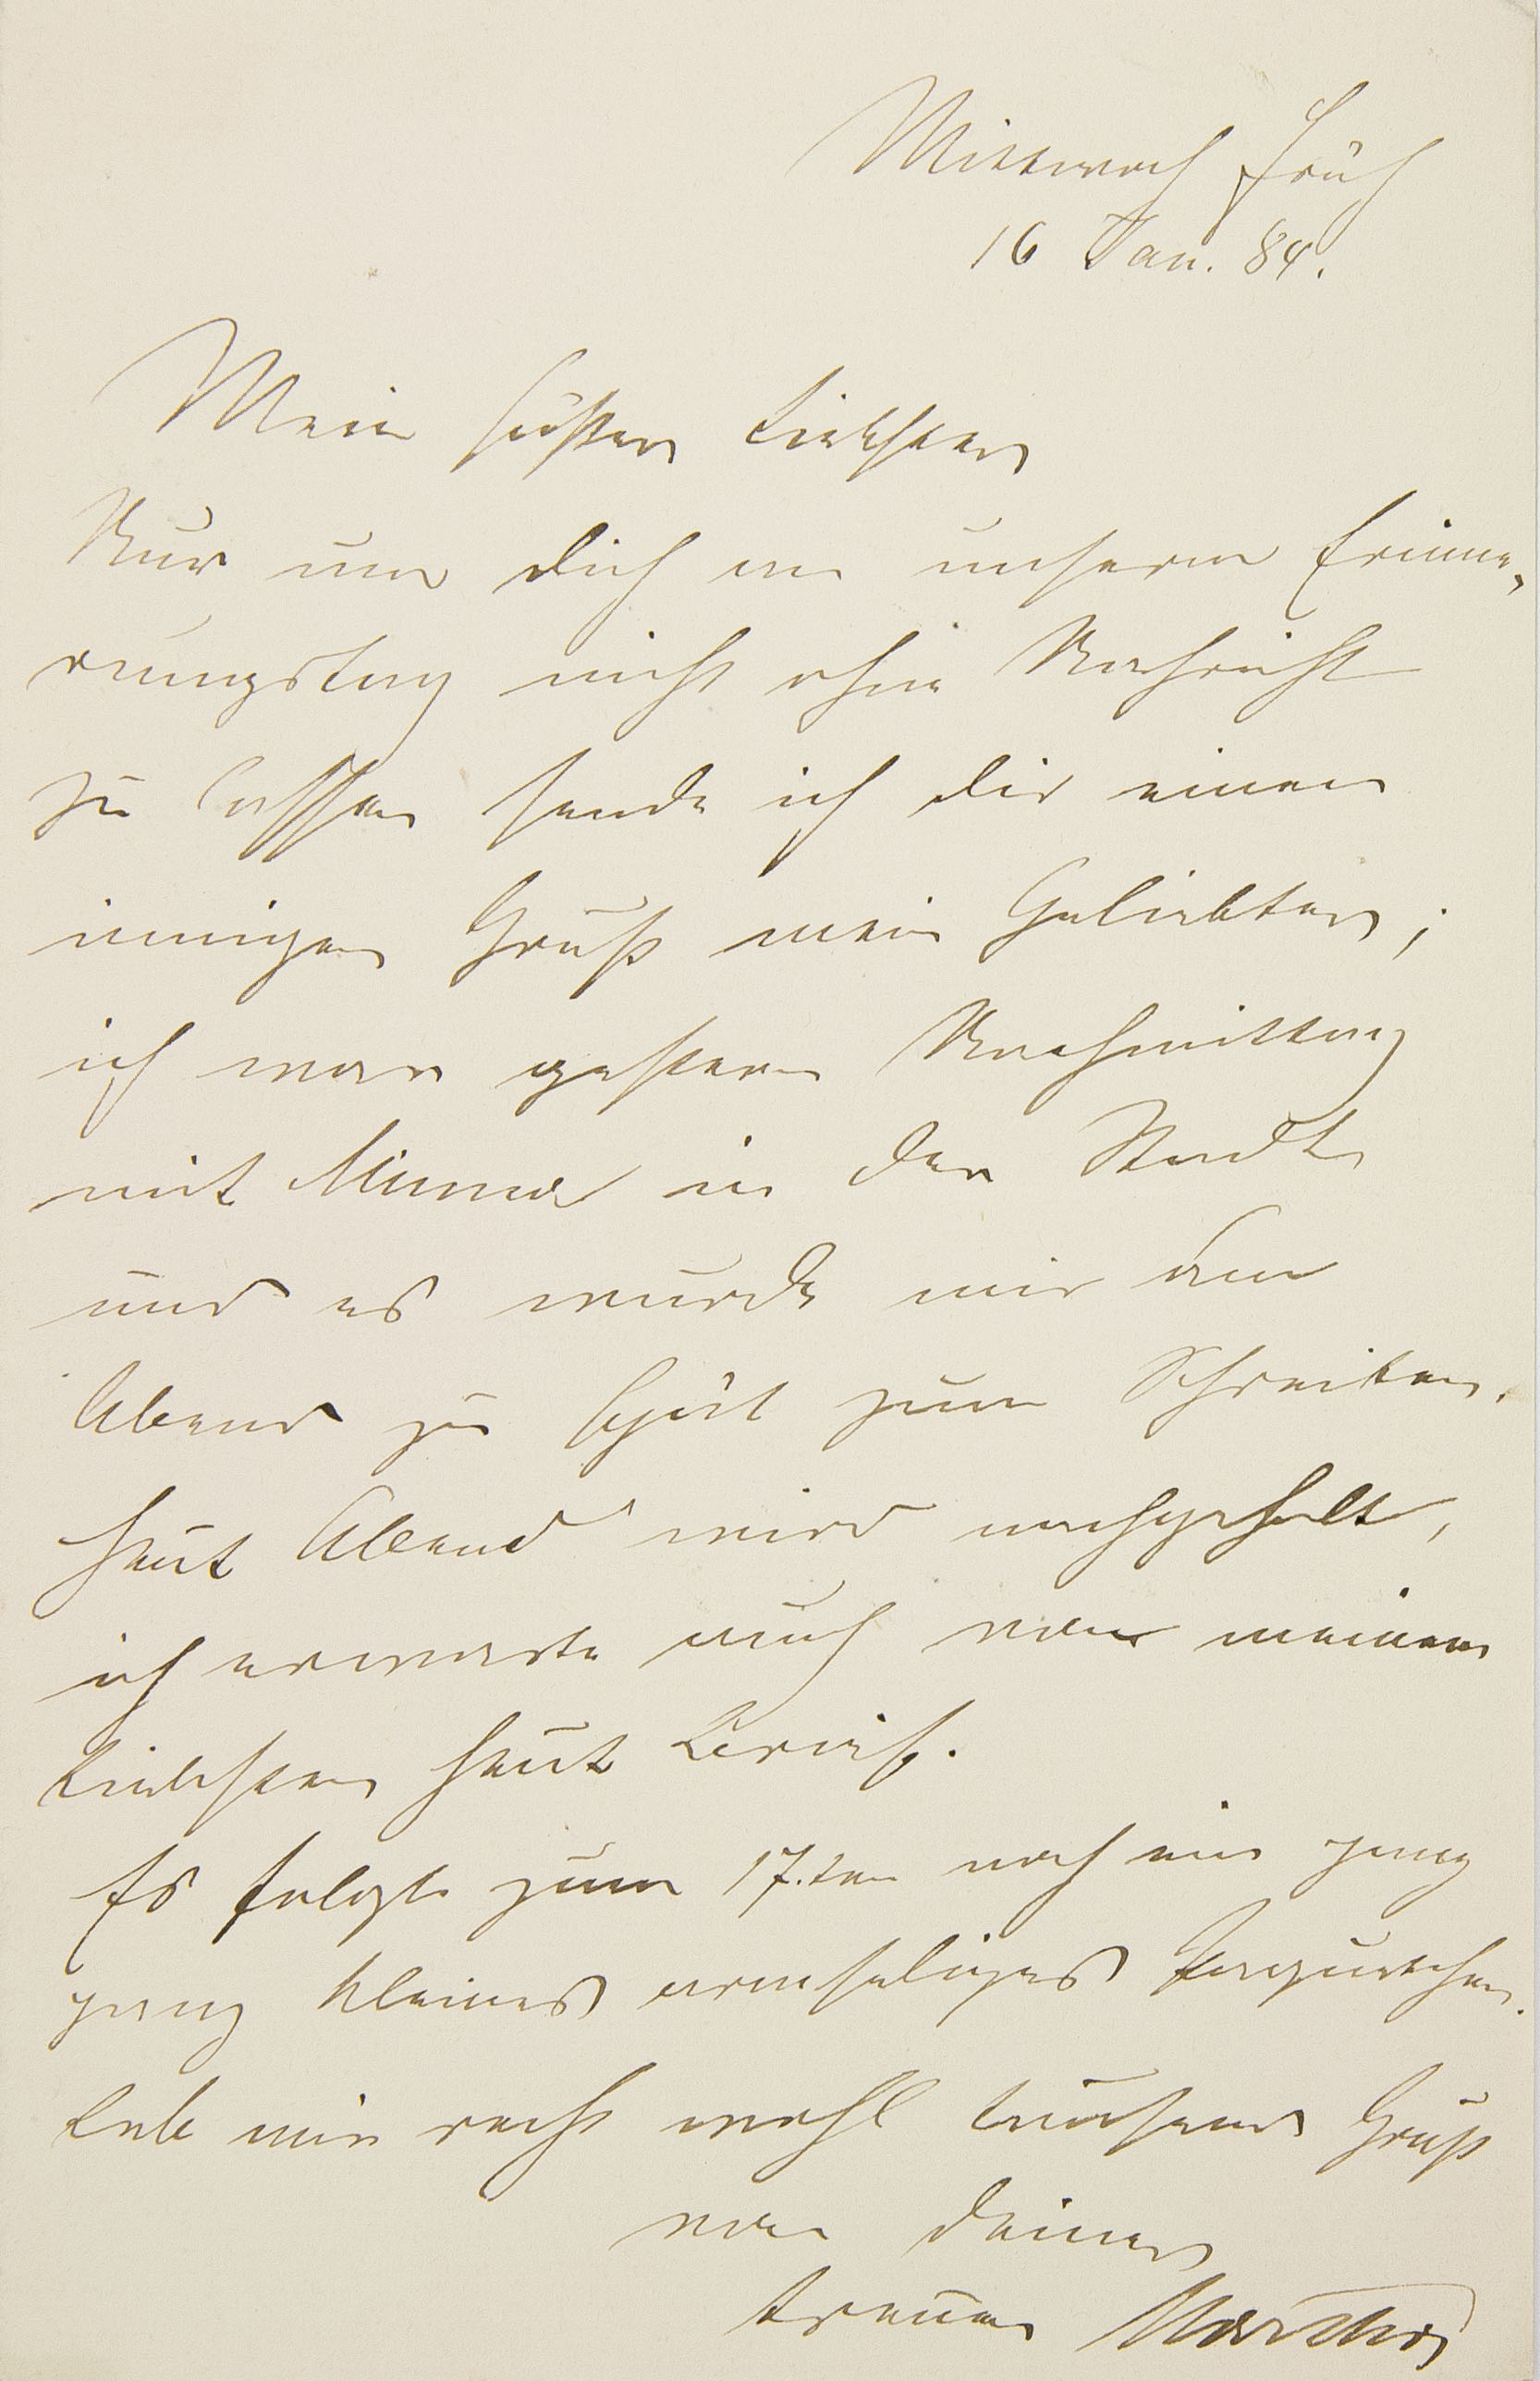 Mittwoch früh
16 Jan. 84.
Mein süßer Liebster
Nur um Dich an unserm Erinne-
rungstag nicht ohne Nachricht
zu lassen sende ich Dir einen
innigen Gruß mein Geliebter;
ich war gestern Nachmittag
mit Minna in der Stadt
und es wurde mir am
Abend zu spät zum Schreiben.
Heut Abend wird nachgeholt,
ich erwarte auch von meinem
Liebsten heut Brief.
Es folgt zum 17.ten noch ein ganz
ganz kleines armseliges
Leb mir recht wohl tausend Gruß
von Deiner
treuen Martha